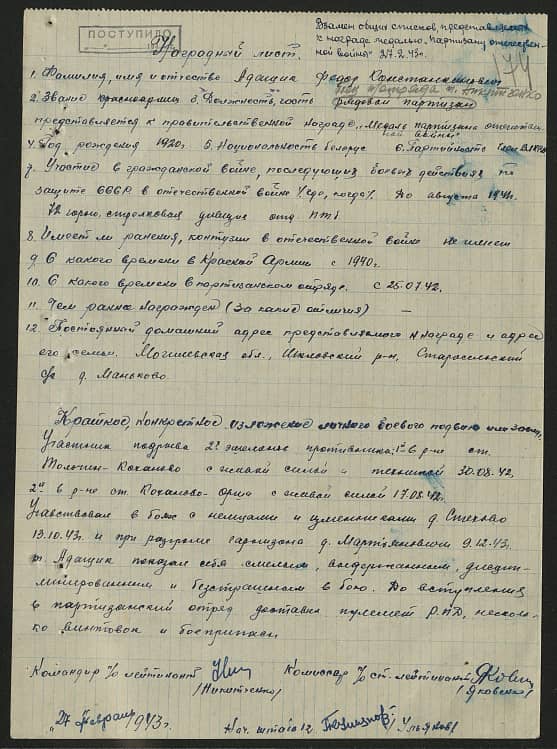 ПОСТУПИЛО
Взамен общих списков, представляется
к награде медалью "Партизану отечествен-
ной войны" 27.2.43г.
174
Наградной лист.
1. Фамилия, имя и отчество Адащик Федор Константинович
2. Звание красноармеец 3. Должность, часть рядовой партизан
представляется к правительственной награде "Медаль партизана отечествен-
ной войны"
4. Год рождения 1920г. 5. Национальность белорус 6. Партийность
7. Участие в гражданской войне, последующих боевых действиях по
защите СССР и отечественной войне /где, когда/. До августа 1941г.
72 горно-стрелковая дивизия отд. ПТб
8. Имеет ли ранения, контузии в отечественной войне не имеет
9. С какого времени в Красной Армии с 1940г.
10. С какого времени в партизанском отряде. с 25.07.42.
11. Чем ранее награжден (За какие отличия) —
12. Постоянный домашний адрес представляемого к награде и адрес
его семьи. Могилевская обл., Шкловский р-н, Старосельский
с/с д. Маньково.
Краткое, конкретное изложение личного боевого подвига или заслуг.
Участник подрыва 2х эшелонов противника: 1й в р-не ст.
Толочин-Коханово с живой силой и техникой 30.08.42.
2й в р-не ст. Коханово-Орша с живой силой 17.08.42г.
Участвовал в боях с немцами и изменниками д. Стехово
13.10.43г. и при разгроме гарнизона д. 9.12.43г.
т. Адащик показал себя смелым, выдержанным, дисцип-
линированным и бесстрашным в бою. До вступления
в партизанский отряд доставил пулемет РПД, несколь-
ко винтовок и боеприпасы.
Командир п/о лейтинант
/Никитченко/
Комиссар п/о ст. лейтинант
/Яковский/
"27 февраля 1943г.
Нач. штаба 12 /Ульяков/